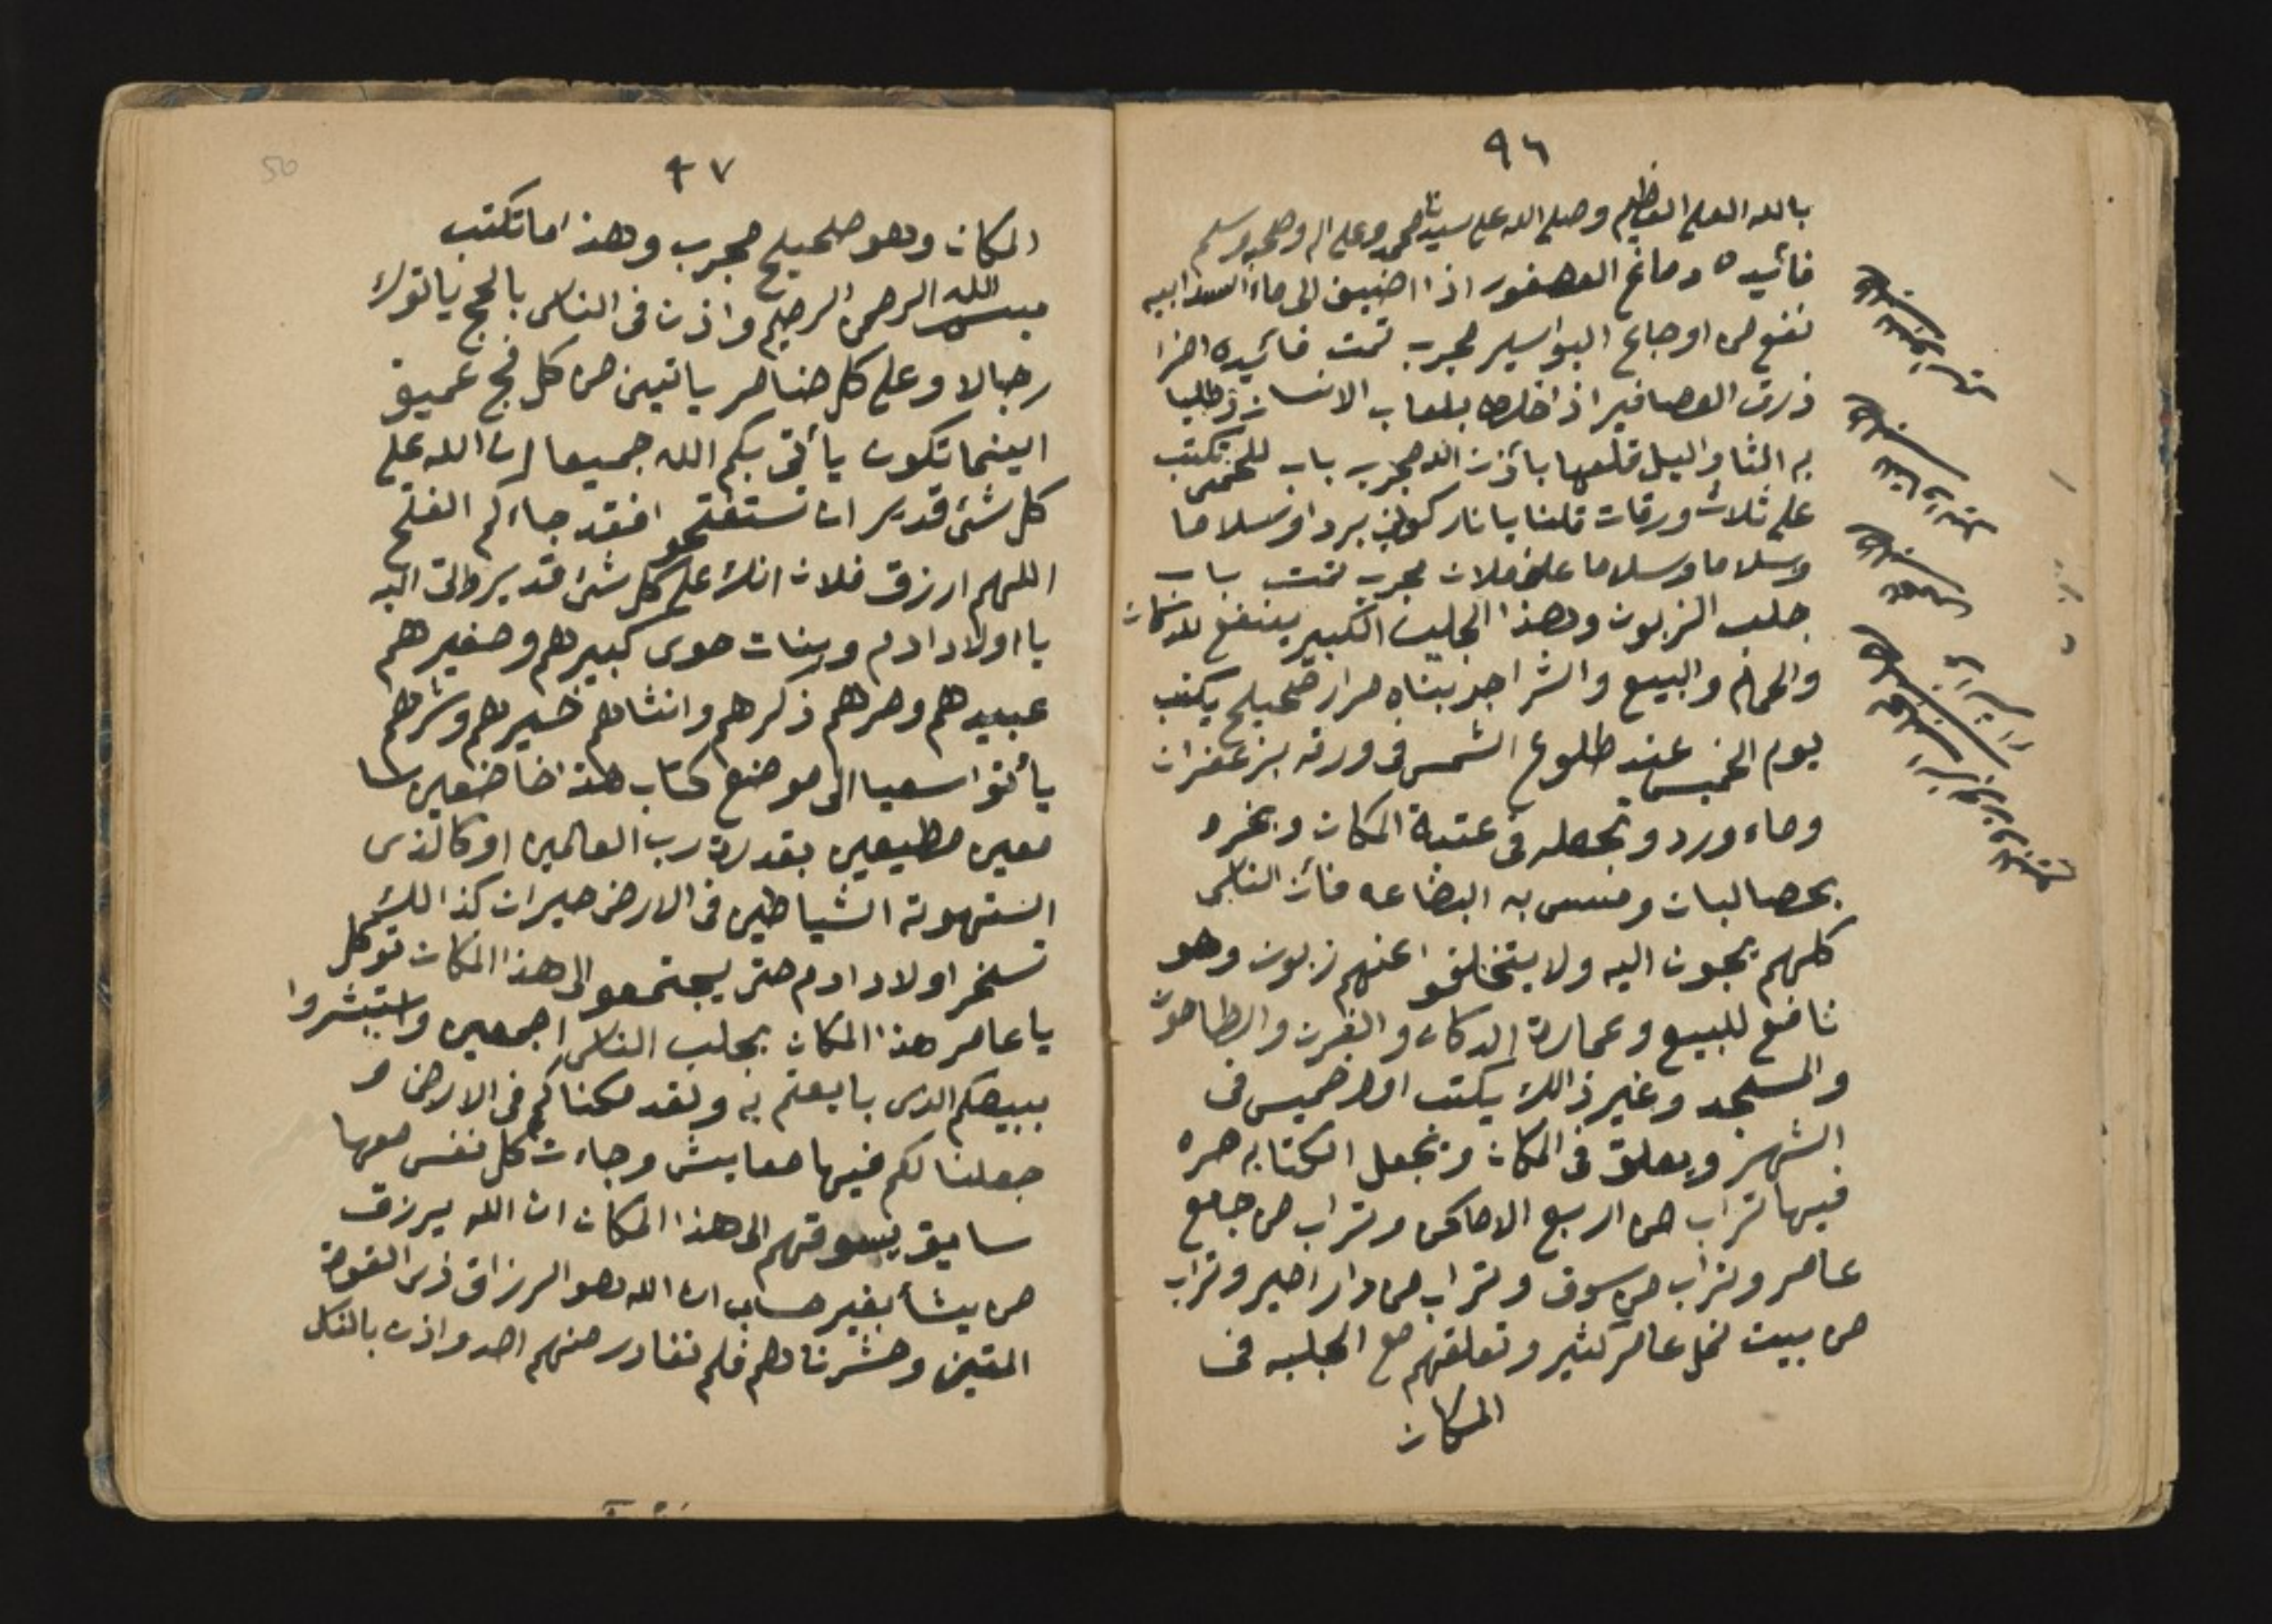 ٩٦
بالله العلي العظيم وصلي الله علي سيدنا محمد وعلي اله وصحبه وسلم
فائيده دماغ العصفور اذا اضيف الى ماء السدابيه
نفع من اوجاع البواسير مجرب تمت فائيده اخرا
ذرق العصافير اذا خلط بلعاب الانسان وطليا
به الثئا واليل قلعها بأذن الله مجرب باب للحمى تكتب
علي ثلاث ورقات قلنا يا نار كوني بردا وسلاما
وسلاما وسلاما علي فلان مجرب تمت باب
جلب الزبون وهذا الجليب الكبير ينفع للدكان
والحمام والبيع والشرا جربناه مرار صحيح يكتب
يوم الخميس عند طلوع الشمس في ورقه بزعفران
وماء ورد وتجعله في عتبة المكان وبخره
بحصالبان ومسس به البضاعه فأن الناس
كلهم يجون اليه ولا يتخلفو اعنهم زبون وهو
نافع للبيع وعمارة الدكان والفرن والطاحون
والمسجد وغير ذالك يكتب اول خميس في
الشهر ويعلق في المكان وتجعل الكتابه صره
فيها تراب من اربع الاماكن وتراب من جامع
عامر وتراب من سوق وتراب من دار امير وتراب
من بيت نمل عامر كثير وتعلقهم مع الجلبه في
المكان
٩٧
50
المكان وهو صحيح مجرب وهذا ما تكتب
بسم الله الرحمن الرحيم واذن في الناس بالحج ياتوك
رجالا وعلي كل ضامر ياتين من كل فج عميق
اينما تكون يأتي بكم الله جميعا ان الله علي
كل شئ قدير ان تستفتحو افقد جاءكم الفتح
اللهم ارزق فلان انك علي كل شئ قدير والتى اليه
يا اولاد ادم وبنات حوى كبيرهم وصغيرهم
عبيدهم وحرهم ذكرهم وانثاهم خيرهم وشرهم
يأتوا سعيا الى موضع كتاب هذا خاضعين سا
معين مطيعين بقدرة رب العالمين او كالذى
استهوته الشياطين في الارض حيران كذالك
تسخر اولاد ادم حتى يجتمعو الى هذا المكان توكل
يا عامر هذا المكان بجلب الناس اجمعين واستبشروا
ببيعكم الذى بايعتم به ولقد مكناكم في الارض و
جعلنا لكم فيها معايش وجاءت كل نفس معها
سايق يسوقهم الى هذا المكان ان الله يرزق
من يشأ بغير حساب ان الله هو الرزاق ذى القوة
المتين وحشرناهم فلم نغادر منهم احد واذن بالتكل